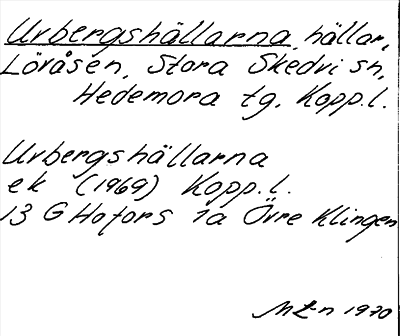 Urbergshällarna, hällar,
Löråsen, Stora Skedvi sn,
Hedemora tg. Kopp.l.
Urbergshällarna
ek (1969) Kopp.l.
13 G Hofors 1a Övre Klingen
1970